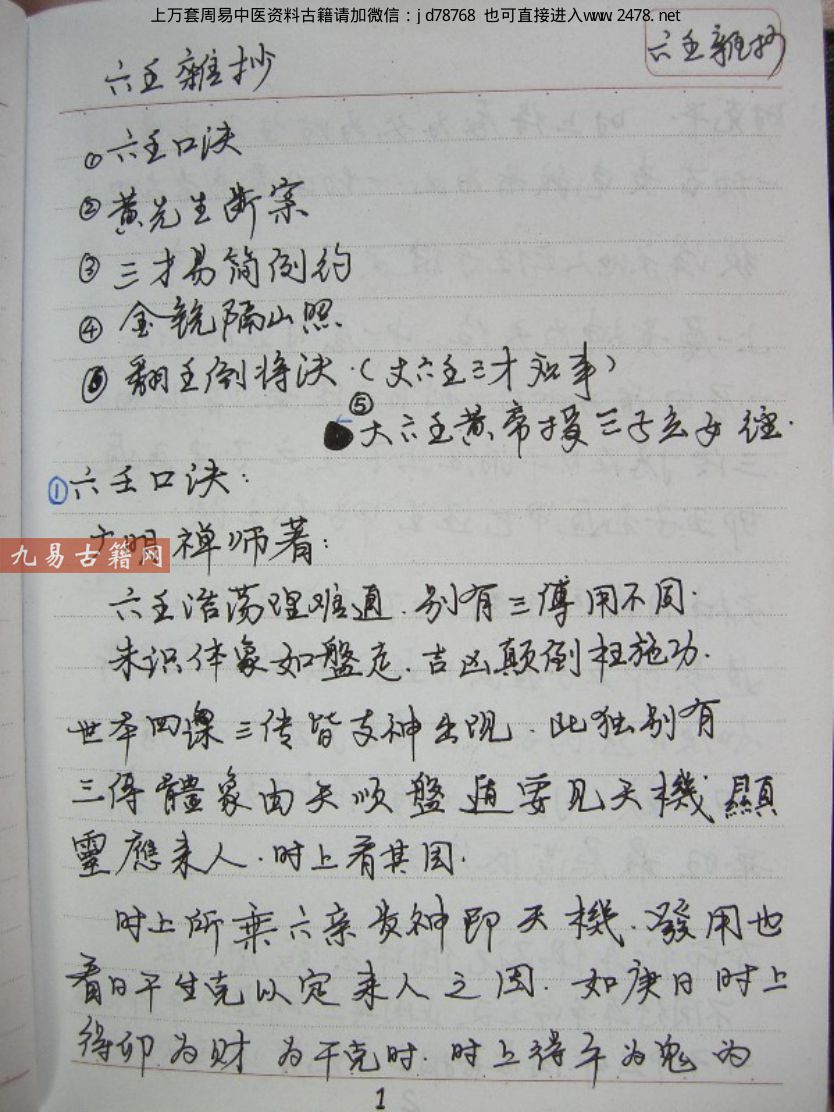 上万套周易中医资料古籍请加微信：jd78768 也可直接进入www.2478.net
六壬雜抄
六壬雜抄
①六壬口诀
②黄先生断案
③三才易简例约
④金镜隔山照
⑥翻壬倒将诀（大六壬三才知事）
⑤大六壬黄帝授三子玄女经
①六壬口诀：
九易古籍网
明禅师著：
六壬浩荡理难通．别有三傳用不同．
未识体象如盤走．吉凶颠倒枉施功．
世本四课三传皆支神出现．此独别有
三傳體象由天顺盤 要见天機顯
靈應来人．时上看其因．
时上所乘六亲贵神即天機．發用也
看日干生克以定来人之因．如庚日时上
得卯为财为干克时．时上得午为鬼为
1